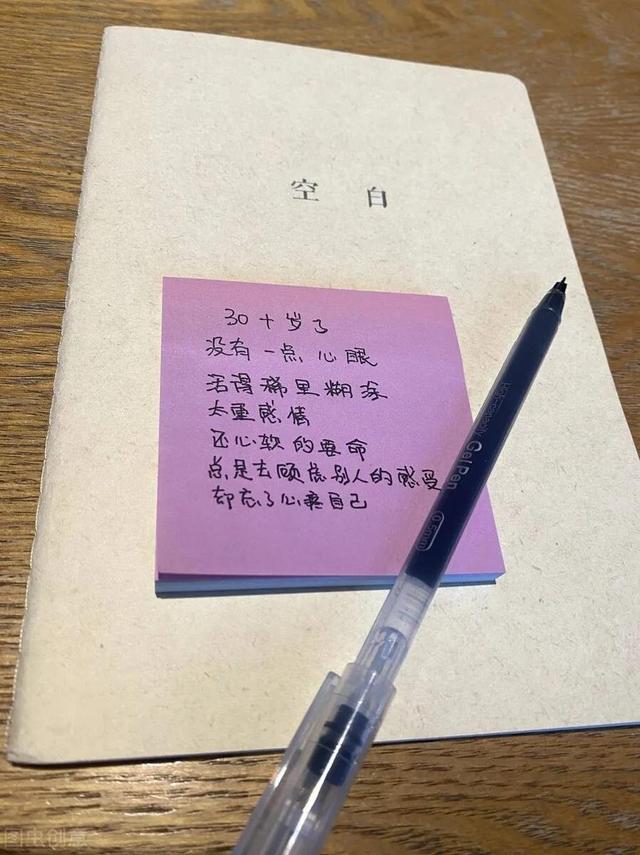 空 白
30十岁了
没有一点心眼
活得稀里糊涂
太重感情
还心软的要命
总是去顾虑别人的感受
却忘了心疼自己
High-capacity Gel Pen
0.5mm
图虫创意